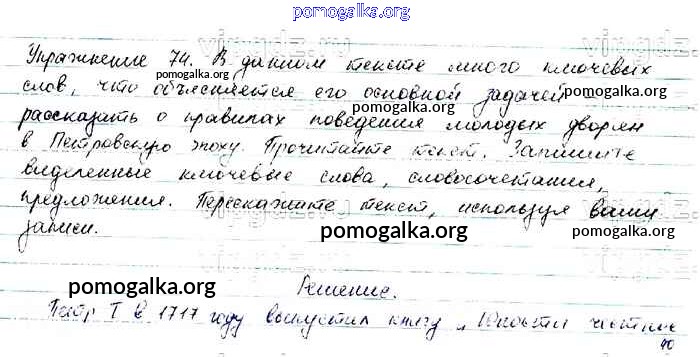 pomogalka.org
Упражнение 74. В данном тексте много ключевых
pomogalka.org
слов, что объясняется его основной задачей
pomogalka.org
рассказать о правилах поведения молодых дворян
в Петровскую эпоху. Прочитайте текст. Запишите
выделенные ключевые слова, словосочетания,
предложения. Перескажите текст, используя ваши
записи.
pomogalka.org
pomogalka.org
pomogalka.org
Решение.
Петр I в 1717 году выпустил книгу „Юности честное
40